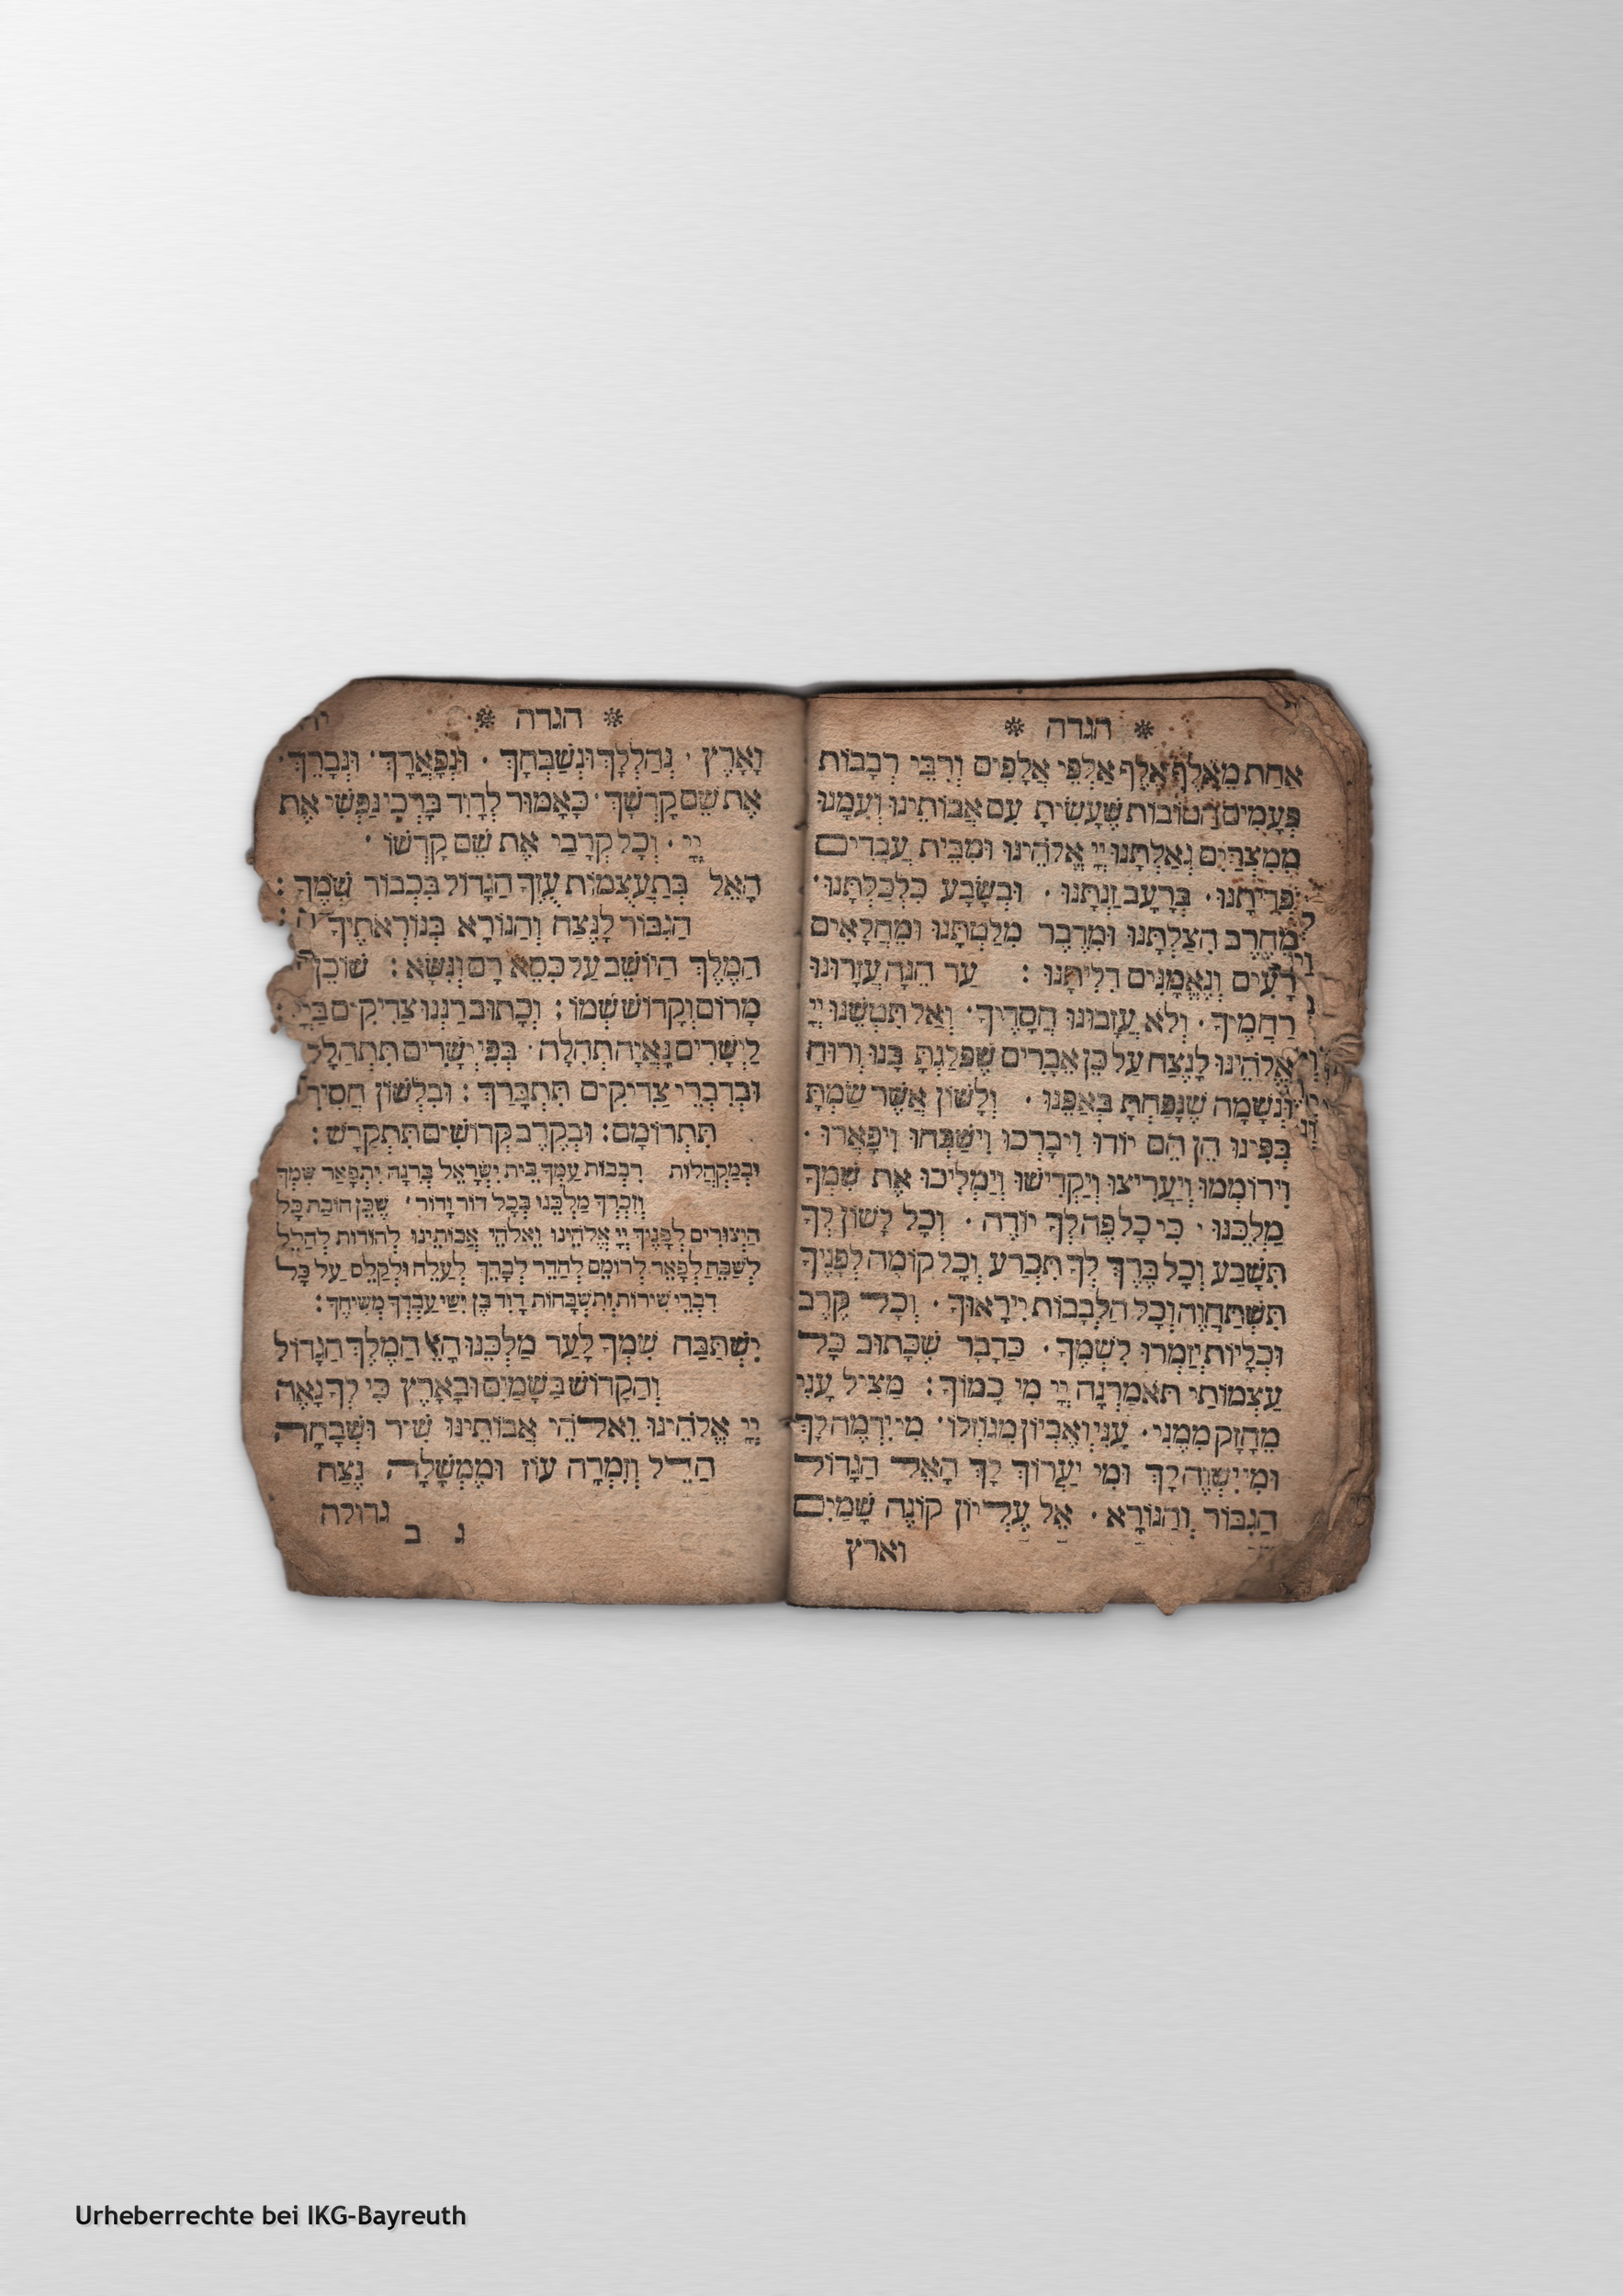 הגדה
אַחַת מֵאֶלֶף אֶלֶף אַלְפֵי אֲלָפִים וְרִבֵּי רְבָבוֹת
פְּעָמִים הַטּוֹבוֹת שֶׁעָשִׂיתָ עִם אֲבוֹתֵינוּ וְעִמָּנוּ
מִמִּצְרַיִם גְאַלְתָּנוּ יְיָ אֱלֹהֵינוּ וּמִבֵּית עֲבָדִים
פְּדִיתָנוּ · בְּרָעָב זַנְתָּנוּ · וּבְשָׂבָע כִלְכַּלְתָּנוּ ·
מֵחֶרֶב הִצַּלְתָּנוּ וּמִדֶּבֶר מִלַּטְתָּנוּ וּמֵחֳלָאִים
רָעִים וְנֶאֱמָנִים דִלִּיתָנוּ : עַד הֵנָּה עֲזָרוּנוּ
רַחֲמֶיךָ · וְלֹא עֲזָבוּנוּ חֲסָדֶיךָ · וְאַל תִּטְּשֵׁנוּ יְיָ
אֱלֹהֵינוּ לָנֶצַח עַל כֵּן אֵבָרִים שֶׁפִּלַּגְתָּ בָּנוּ וְרוּחַ
וּנְשָׁמָה שֶׁנָּפַחְתָּ בְּאַפֵּנוּ · וְלָשׁוֹן אֲשֶׁר שַׂמְתָּ
בְּפִינוּ הֵן הֵם יוֹדוּ וִיבָרְכוּ וִישַׁבְּחוּ וִיפָאֲרוּ ·
וִירוֹמְמוּ וְיַעֲרִיצוּ וְיַקְדִּישׁוּ וְיַמְלִיכוּ אֶת שִׁמְךָ
מַלְכֵּנוּ · כִּי כָל פֶּה לְךָ יוֹדֶה · וְכָל לָשׁוֹן לְךָ
תִשָּׁבַע וְכָל בֶּרֶךְ לְךָ תִכְרַע וְכָל קוֹמָה לְפָנֶיךָ
תִּשְׁתַּחֲוֶה וְכָל הַלְּבָבוֹת יִירָאוּךָ · וְכָל קֶרֶב
וּכְלָיוֹת יְזַמְּרוּ לִשְׁמֶךָ · כַּדָבָר שֶׁכָּתוּב כָּל
עַצְמוֹתַי תֹּאמַרְנָה יְיָ מִי כָמוֹךָ : מַצִּיל עָנִי
מֵחָזָק מִמֶּנּוּ · עָנִי וְאֶבְיוֹן מִגּוֹזְלוֹ · מִי יִדְמֶה לָּךְ
וּמִי יִשְׁוֶה לָּךְ וּמִי יַעֲרוֹךְ לָךְ הָאֵל הַגָּדוֹל
הַגִּבּוֹר וְהַנּוֹרָא · אֵל עֶלְיוֹן קוֹנֵה שָׁמַיִם
וארץ
הגדה
וָאָרֶץ · נְהַלֶּלְךָ וּנְשַׁבְּחָךְ · וּנְפָאֲרָךְ · וּנְבָרֵךְ ·
אֶת שֵׁם קָדְשֶׁךָ · כָּאָמוּר לְדָוִד בָּרְכִי נַפְשִׁי אֶת
יְיָ · וְכָל קְרָבַי אֶת שֵׁם קָדְשׁוֹ ·
הָאֵל בְּתַעֲצֻמוֹת עֻזֶּךָ הַגָּדוֹל בִּכְבוֹד שְׁמֶךָ :
הַגִּבּוֹר לָנֶצַח וְהַנּוֹרָא בְּנוֹרְאֹתֶיךָ
הַמֶּלֶךְ הַיּוֹשֵׁב עַל כִּסֵּא רָם וְנִשָּׂא : שׁוֹכֵן
מָרוֹם וְקָדוֹשׁ שְׁמוֹ : וְכָתוּב רַנְּנוּ צַדִּיקִים בַּיְיָ :
לַיְשָׁרִים נָאֲוָה תְהִלָּה · בְּפִי יְשָׁרִים תִּתְהַלָּל
וּבְדִבְרֵי צַדִּיקִים תִּתְבָּרַךְ : וּבִלְשׁוֹן חֲסִידִ
תִּתְרוֹמָם : וּבְקֶרֶב קְדוֹשִׁים תִּתְקַדָּשׁ :
וּבְמַקְהֲלוֹת רִבְבוֹת עַמְּךָ בֵּית יִשְׂרָאֵל בְּרִנָּה יִתְפָּאַר שִׁמְךָ
וְזִכְרְךָ מַלְכֵּנוּ בְּכָל דּוֹר וָדוֹר · שֶׁכֵּן חוֹבַת כָּל
הַיְצוּרִים לְפָנֶיךָ יְיָ אֱלֹהֵינוּ וֵאלֹהֵי אֲבוֹתֵינוּ לְהוֹדוֹת לְהַלֵּל
לְשַׁבֵּחַ לְפָאֵר לְרוֹמֵם לְהַדֵּר לְבָרֵךְ לְעַלֵּה וּלְקַלֵּס עַל כָּל
דִּבְרֵי שִׁירוֹת וְתִשְׁבָּחוֹת דָוִד בֶּן יִשַׁי עַבְדְּךָ מְשִׁיחֶךָ :
יִשְׁתַּבַּח שִׁמְךָ לָעַד מַלְכֵּנוּ הָאֵל הַמֶּלֶךְ הַגָּדוֹל
וְהַקָּדוֹשׁ בַּשָּׁמַיִם וּבָאָרֶץ כִּי לְךָ נָאֶה
יְיָ אֱלֹהֵינוּ וֵאלֹהֵי אֲבוֹתֵינוּ שִׁיר וּשְׁבָחָה
הַלֵּל וְזִמְרָה עוֹז וּמֶמְשָׁלָה נֶצַח
גדולה
ג ב
Urheberrechte bei IKG-Bayreuth